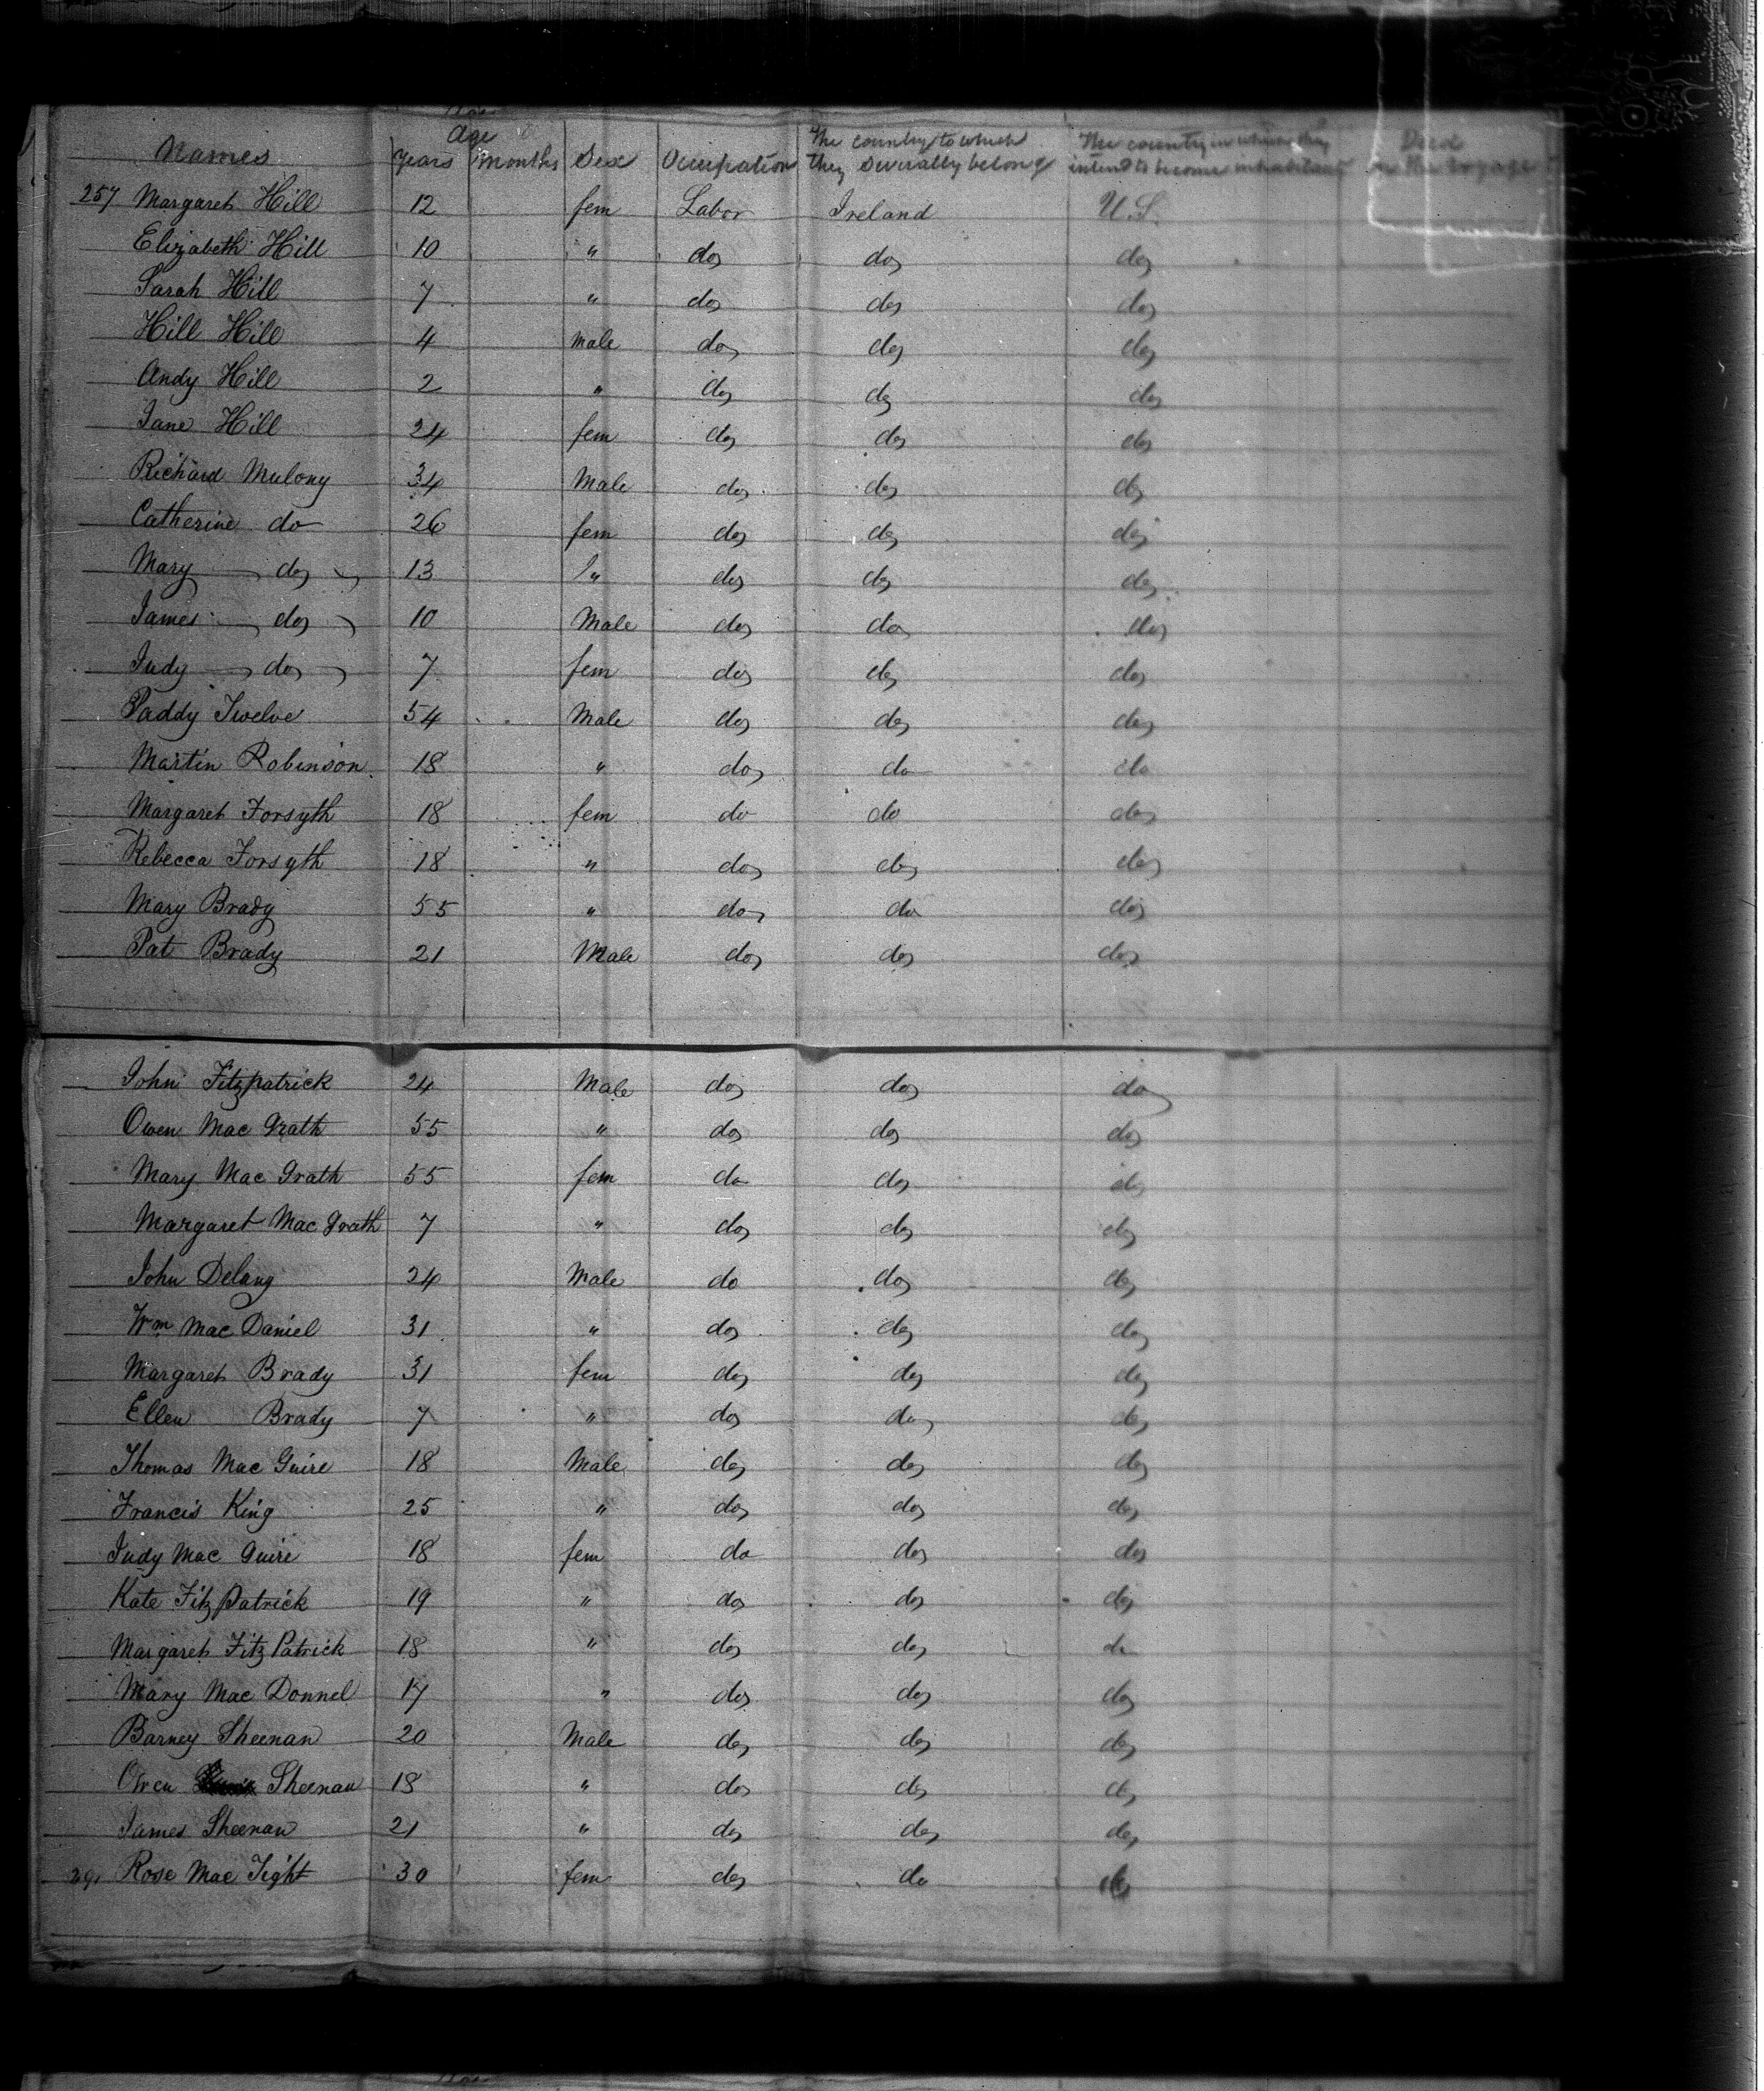 Names Age Years Months Sex Occupation The country to which they severally belong The country in which they intend to become inhabitants Died on the voyage
257 Margaret Hill 12 fem Labor Ireland U.S.
Elizabeth Hill 10 " do do do
Sarah Hill 7 " do do do
Hill Hill 4 Male do do do
Andy Hill 2 " do do do
Jane Hill 24 fem do do do
Richard Mulony 34 Male do do do
Catherine do 26 fem do do do
Mary do 13 " do do do
James do 10 Male do do do
Judy do 7 fem do do do
Paddy Twelve 54 Male do do do
Martin Robinson 18 " do do do
Margaret Forsyth 18 fem do do do
Rebecca Forsyth 18 " do do do
Mary Brady 55 " do do do
Pat Brady 21 Male do do do
John Fitzpatrick 24 Male do do do
Owen Mac Grath 55 " do do do
Mary Mac Grath 55 fem do do do
Margaret Mac Grath 7 " do do do
John Delany 24 Male do do do
Wm Mac Daniel 31 " do do do
Margaret Brady 31 fem do do do
Ellen Brady 7 " do do do
Thomas Mac Guire 18 Male do do do
Francis King 25 " do do do
Judy Mac Guire 18 fem do do do
Kate Fitz Patrick 19 " do do do
Margaret Fitz Patrick 18 " do do do
Mary Mac Donnel 17 " do do do
Barney Sheenan 20 Male do do do
Owen Sheenan 18 " do do do
James Sheenan 21 " do do do
291 Rose Mac Tight 30 fem do do do